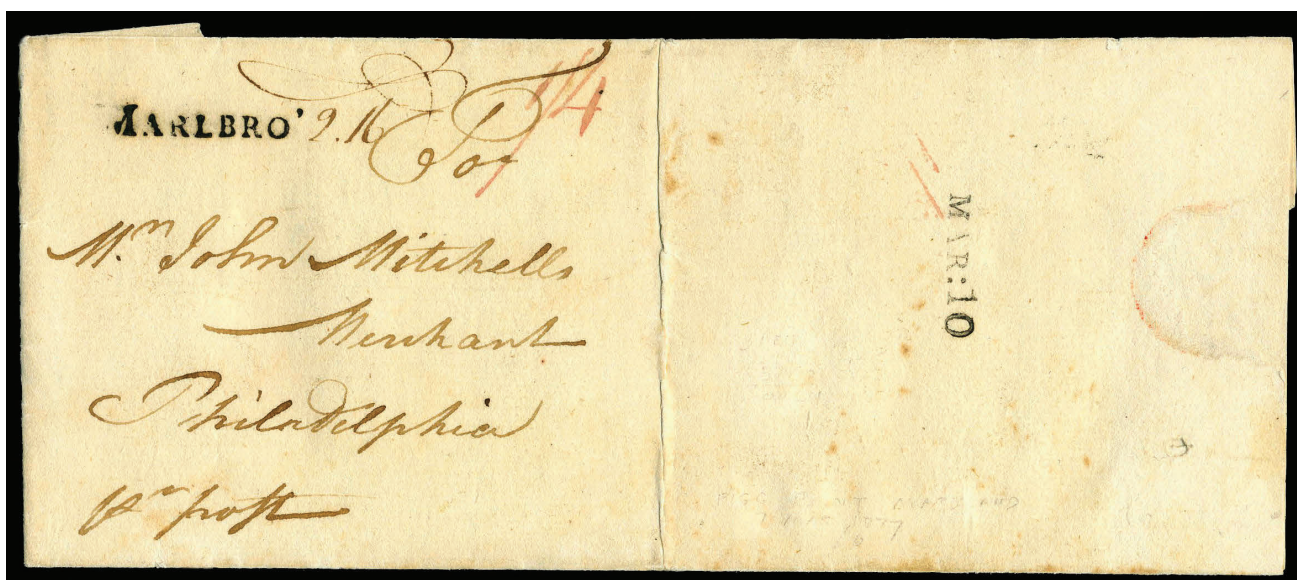 MARLBRO' 2.16 1/4
For
Mr. John Mitchell
Merchant
Philadelphia
pr post
MAR:10